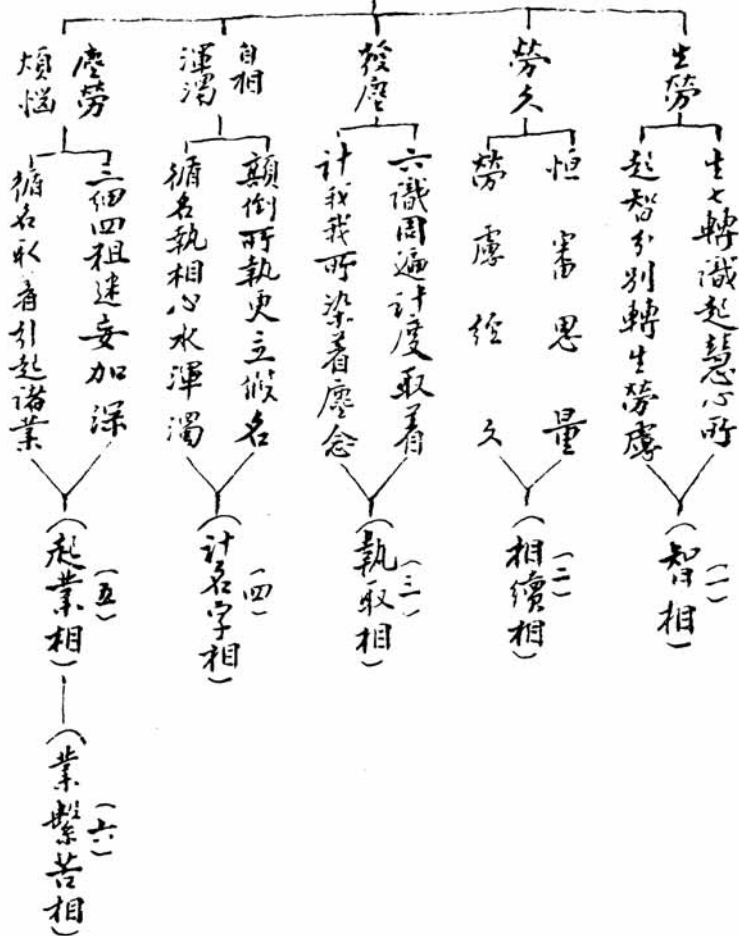 生勞
生七轉識起慧心所
起智分別轉生勞慮
(一)
(智相)
勞久
恒審思量
勞慮經久
(二)
(相續相)
發塵
六識周遍計度取着
計我我所染着塵念
(三)
(執取相)
自相
渾濁
顛倒所執更立假名
循名執相心水渾濁
(四)
(計名字相)
塵勞
煩惱
三細四粗迷妄加深
循名取着引起諸業
(五)
(起業相)
(六)
(業繫苦相)